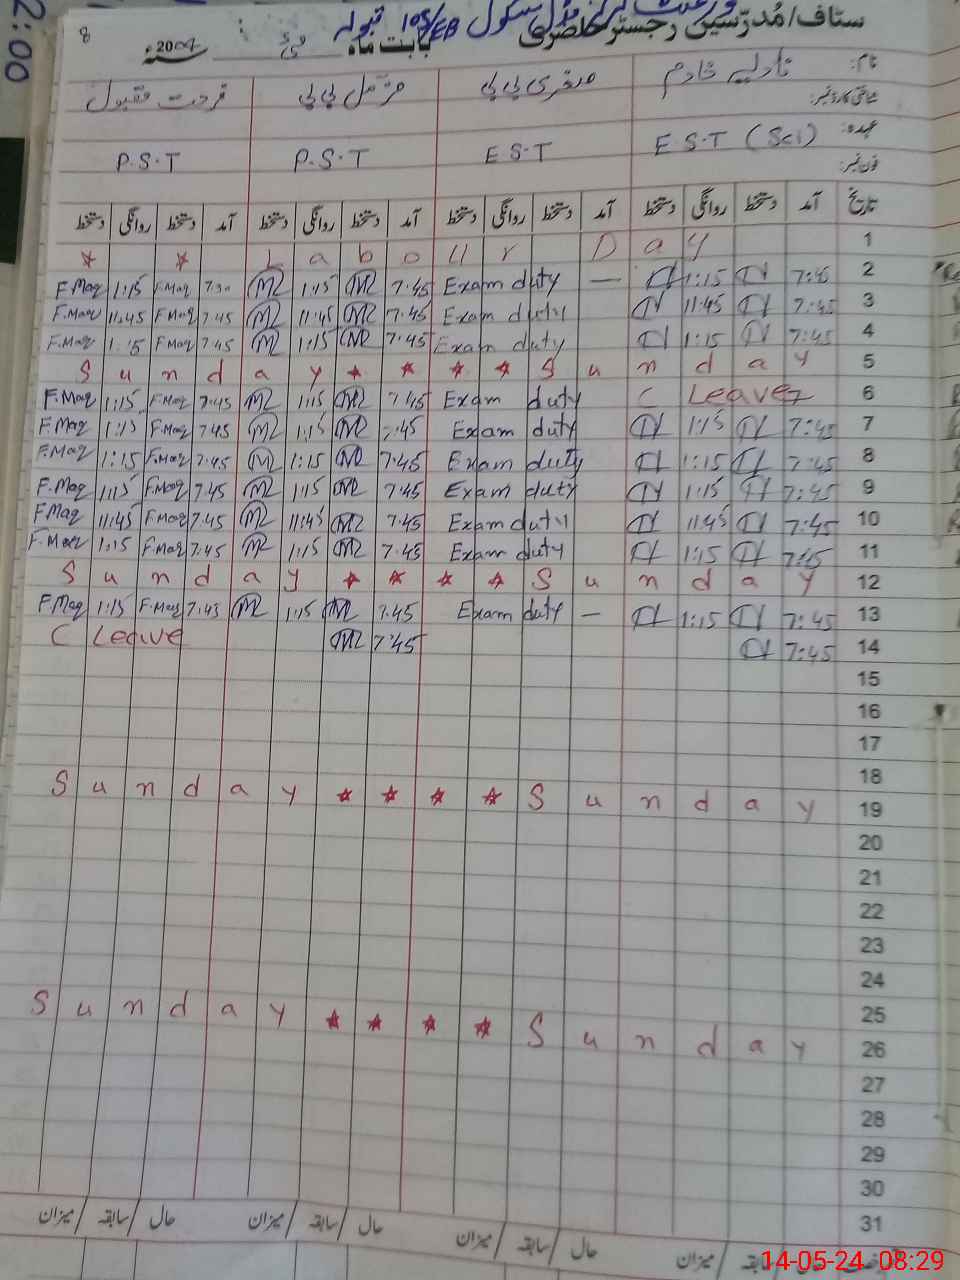 2:00
8
سکول 105/EB قبولہ
ستاف/مُدرّسین رجسٹر حاضری بابت ماہ مئی 2004 سنہ
نام: نادیہ خادم صغری بی بی مزمل بی بی فرحت مقبول
شناختی کارڈ نمبر:
عہدہ: E.S.T (Sci) E.S.T P.S.T P.S.T
فون نمبر:
تاریخ آمد دستخط روانگی دستخط آمد دستخط روانگی دستخط آمد دستخط روانگی دستخط آمد دستخط روانگی دستخط
☆ ☆ L a b o u r D a y 1
F.Maq 1:15 F.Maq 7:30 M2 1:15 M2 7:45 Exam duty — N 1:15 N 7:45 2
F.Maq 11:45 F.Maq 7:45 M2 11:45 M2 7:45 Exam duty N 11:45 N 7:45 3
F.Maq 1:15 F.Maq 7:45 M2 1:15 M2 7:45 Exam duty N 1:15 N 7:45 4
S u n d a y ☆ ☆ ☆ ☆ S u n d a y 5
F.Maq 1:15 F.Maq 7:45 M2 1:15 M2 7:45 Exam duty C Leave 6
F.Maq 1:15 F.Maq 7:45 M2 1:15 M2 7:45 Exam duty N 1:15 N 7:45 7
F.Maq 1:15 F.Maq 7:45 M2 1:15 M2 7:45 Exam duty N 1:15 N 7:45 8
F.Maq 1:15 F.Maq 7:45 M2 1:15 M2 7:45 Exam duty N 1:15 N 7:45 9
F.Maq 11:45 F.Maq 7:45 M2 11:45 M2 7:45 Exam duty N 11:45 N 7:45 10
F.Maq 1:15 F.Maq 7:45 M2 1:15 M2 7:45 Exam duty N 1:15 N 7:45 11
S u n d a y ☆ ☆ ☆ ☆ S u n d a y 12
F.Maq 1:15 F.Maq 7:45 M2 1:15 M2 7:45 Exam duty — N 1:15 N 7:45 13
C Leave M2 7:45 N 7:45 14
15
16
17
18
S u n d a y ☆ ☆ ☆ ☆ S u n d a y 19
20
21
22
23
24
25
S u n d a y ☆ ☆ ☆ ☆ S u n d a y 26
27
28
29
30
31
سابقہ / میزان حال / سابقہ / میزان حال / سابقہ / میزان حال / سابقہ / میزان
14-05-24 08:29